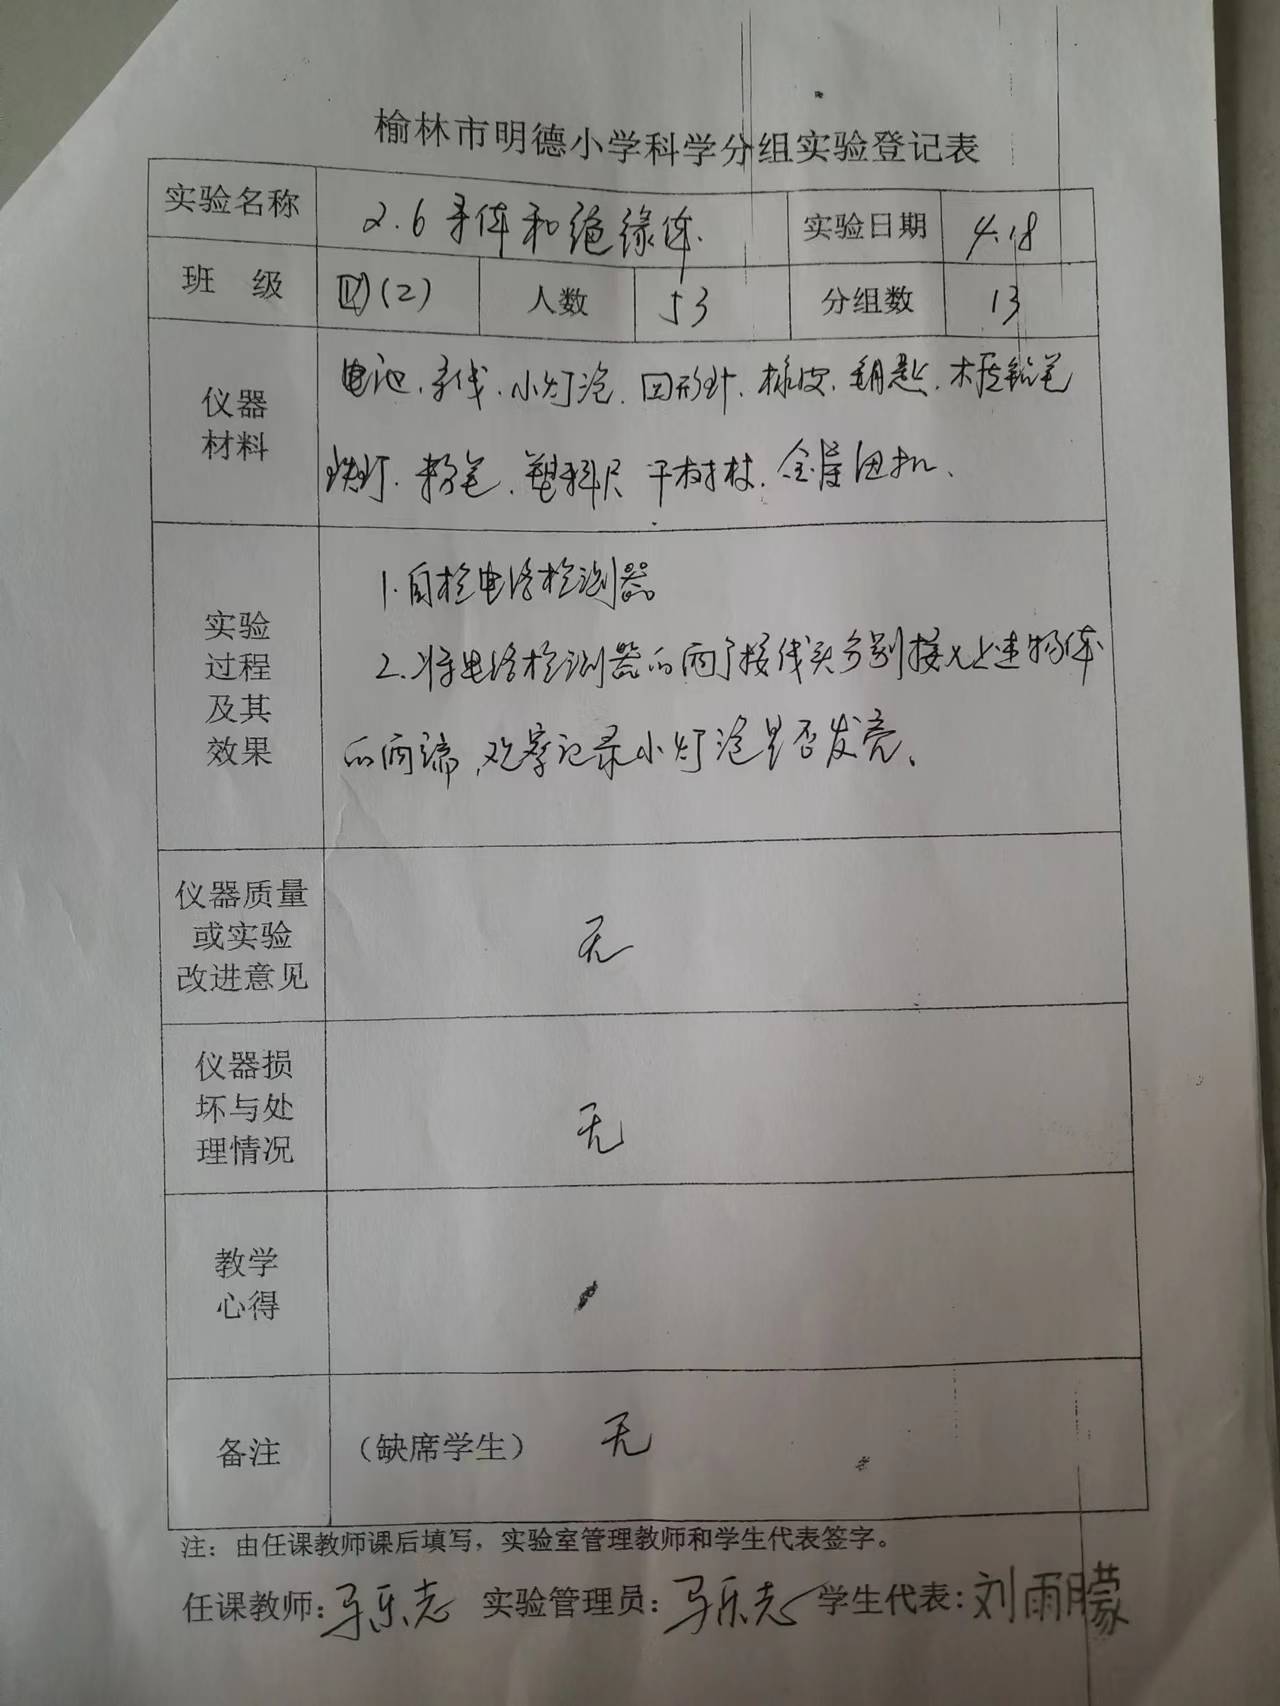 榆林市明德小学科学分组实验登记表
实验名称 2.6导体和绝缘体. 实验日期 4.18
班 级 四(2) 人数 53 分组数 13
仪器
材料
电池.导线.小灯泡.回形针.橡皮.钥匙.木质铅笔
铁钉.粉笔.塑料尺 干树枝.金属钮扣、
实验
过程
及其
效果
1.自检电路检测器
2.将电路检测器的两个接线头分别接入上述物体
的两端,观察记录小灯泡是否发亮。
仪器质量
或实验
改进意见
无
仪器损
坏与处
理情况
无
教学
心得
备注 (缺席学生) 无
注：由任课教师课后填写，实验室管理教师和学生代表签字。
任课教师:马乐志 实验管理员:马乐志 学生代表:刘雨朦